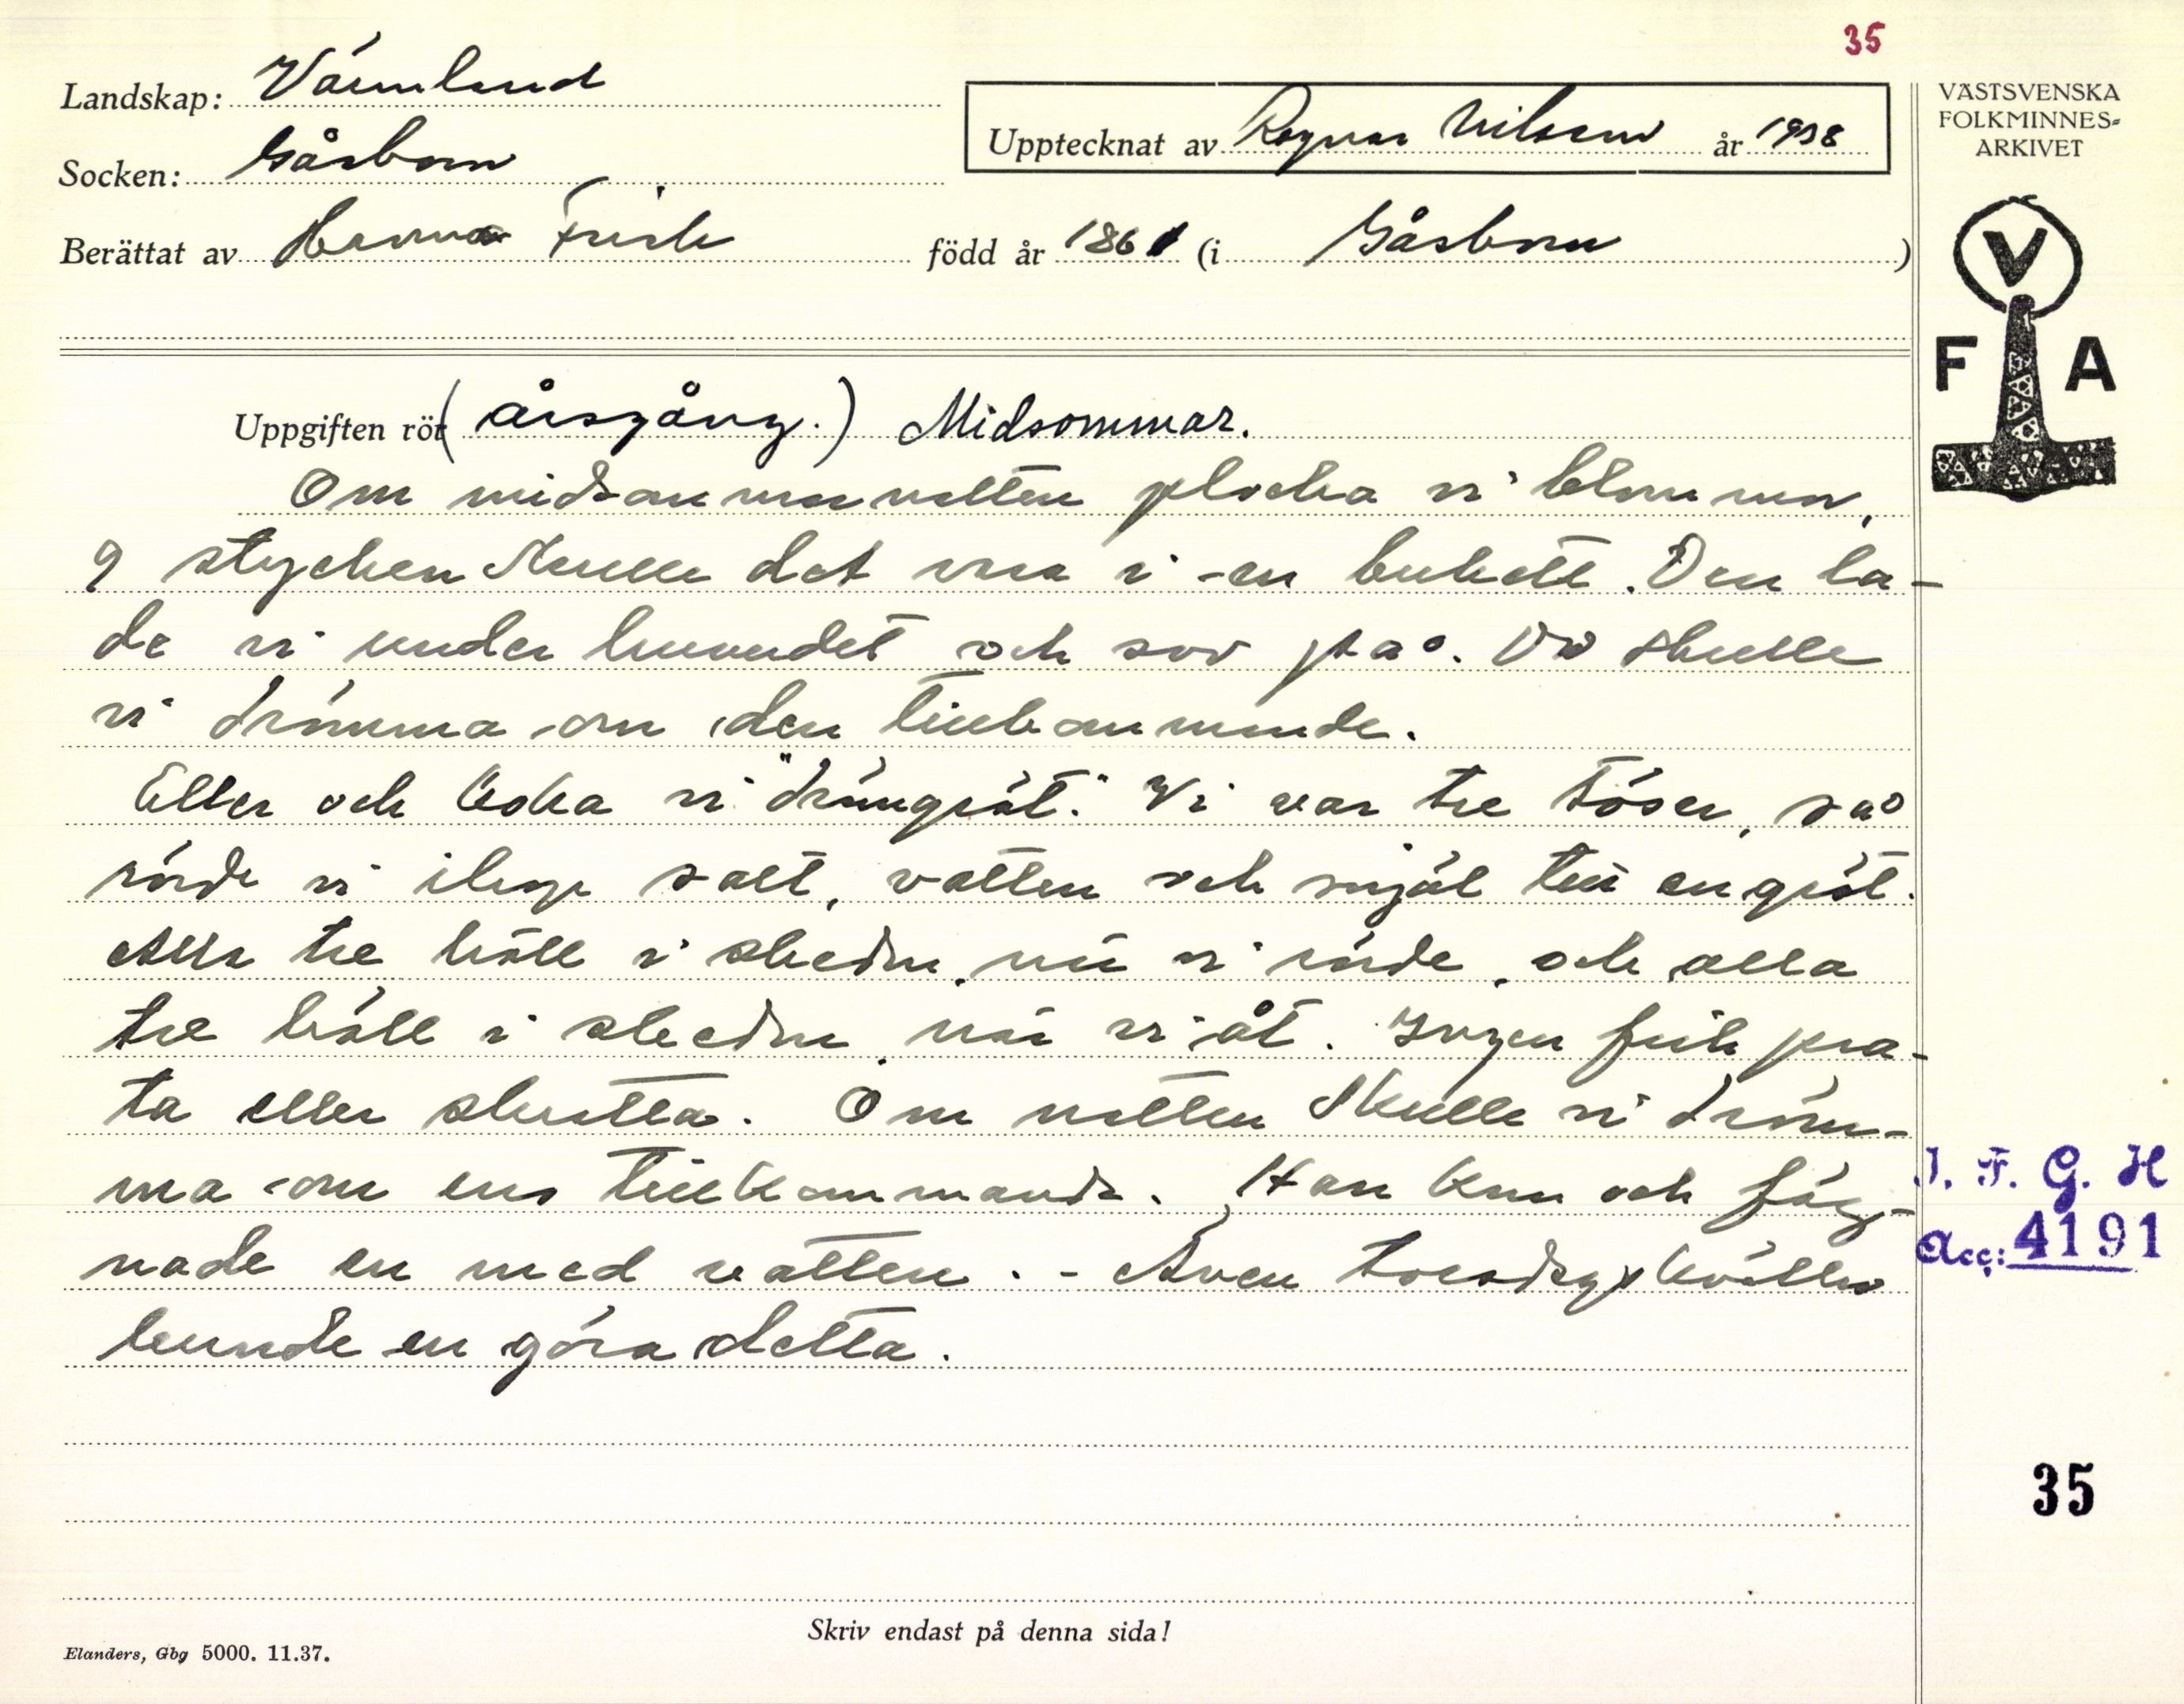 35
Landskap: Värmland
Socken: Gåsborn
Upptecknat av Ragnar Nilsson år 1938
Berättat av Hanna Frisk född år 1861 (i Gåsborn)
VÄSTSVENSKA
FOLKMINNES-
ARKIVET
V
F A
Uppgiften rör (årsgång.) Midsommar.
Om midsommarnatten plocka vi blommor,
9 stycken skulle det vara i en bukett. Den la-
de vi under huvudet och sov på. Då skulle
vi drömma om den tillkommande.
Eller och koka vi "drömgröt." Vi var tre töser, så
rörde vi ihop salt, vatten och mjöl till en gröt.
Alla tre höll i skeden, när vi rörde, och alla
tre höll i skeden, när vi åt. Ingen fick pra-
ta eller skratta. Om natten skulle vi dröm-
ma om ens tillkommande. Han kom och fäg-
nade en med vatten. - Även torsdagskvällar
kunde en göra detta.
I. F. G. H
Acc: 4191
35
Skriv endast på denna sida!
Elanders, Gbg 5000. 11.37.